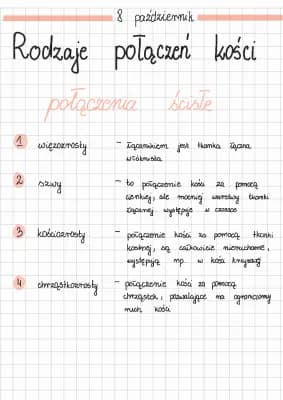 8 październik
Rodzaje połączeń kości
połączenia ścisłe
1 więzozrosty - łącznikiem jest tkanka łączna
włóknista
2 szwy - to połączenie kości za pomocą
cienkiej, ale mocnej warstwy tkanki
łącznej występuje w czaszce
3 kościozrosty - połączenie kości za pomocą tkanki
kostnej, są całkowicie nieruchome,
występują np. w kości krzyżowej
4 chrząstkozrosty - połączenie kości za pomocą
chrząstek, pozwalające na ograniczony
ruch kości